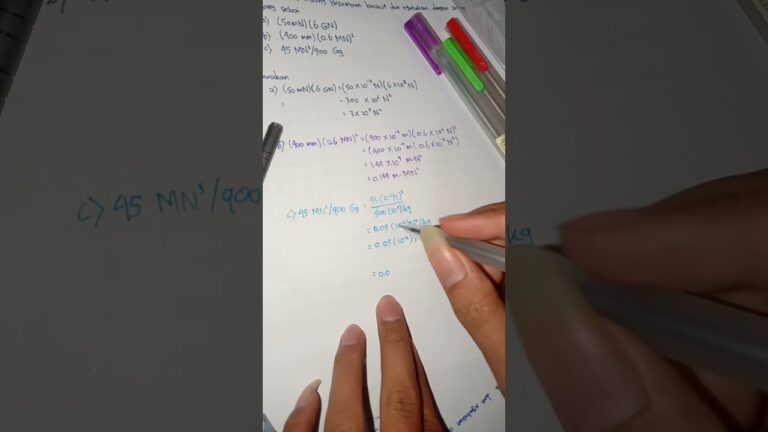 berikut dan nyatakan dengan
a) (50 mN)(6 GN)
b) (400 mm)(0.6 MN)²
c) 45 MN³/900 Gg
a) (50 mN)(6 GN) = (50 × 10⁻³ N)(6 × 10⁹ N)
= 300 × 10⁶ N²
= 3 × 10⁸ N²
b) (400 mm)(0.6 MN)² = (400 × 10⁻³ m)(0.6 × 10⁶ N)²
= (400 × 10⁻³ m)(0.6 × 10¹² N²)
= 144 × 10⁹ m·N²
= 0.144 m·MN²
c) 45 MN³/900 Gg = 45(10⁶N)³
900(10⁶)kg
= 0.05(10¹²)N³/kg
= 0.05(10¹²)
= 0.0
c) 45 MN³/900
kg